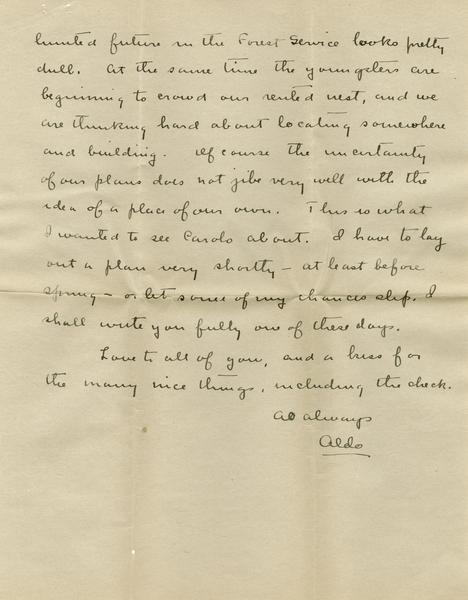 limited future in the Forest Service looks pretty
dull. At the same time the youngsters are
beginning to crowd our rented nest, and we
are thinking hard about locating somewhere
and building. Of course the uncertainty
of our plans does not jibe very well with the
idea of a place of our own. This is what
I wanted to see Carolo about. I have to lay
out a plan very shortly – at least before
spring – or let some of my chances slip. I
shall write you fully one of these days.
Love to all of you, and a kiss for
the many nice things, including the check.
As always
Aldo